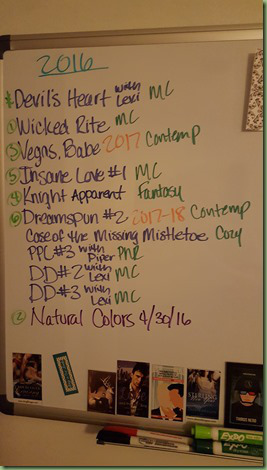 2016
* Devil's Heart with Lexi MC
① Wicked Rite MC
③ Vegas, Babe 2017 Contemp
⑤ Insane Love #1 MC
④ Knight Apparent Fantasy
⑥ Dreamspun #2 2017-18 Contemp
Case of the Missing Mistletoe Cozy
PPC #3 with Piper PNR
DD #2 with Lexi MC
DD #3 with Lexi MC
② Natural Colors 4/30/16
EXPO
EXPO